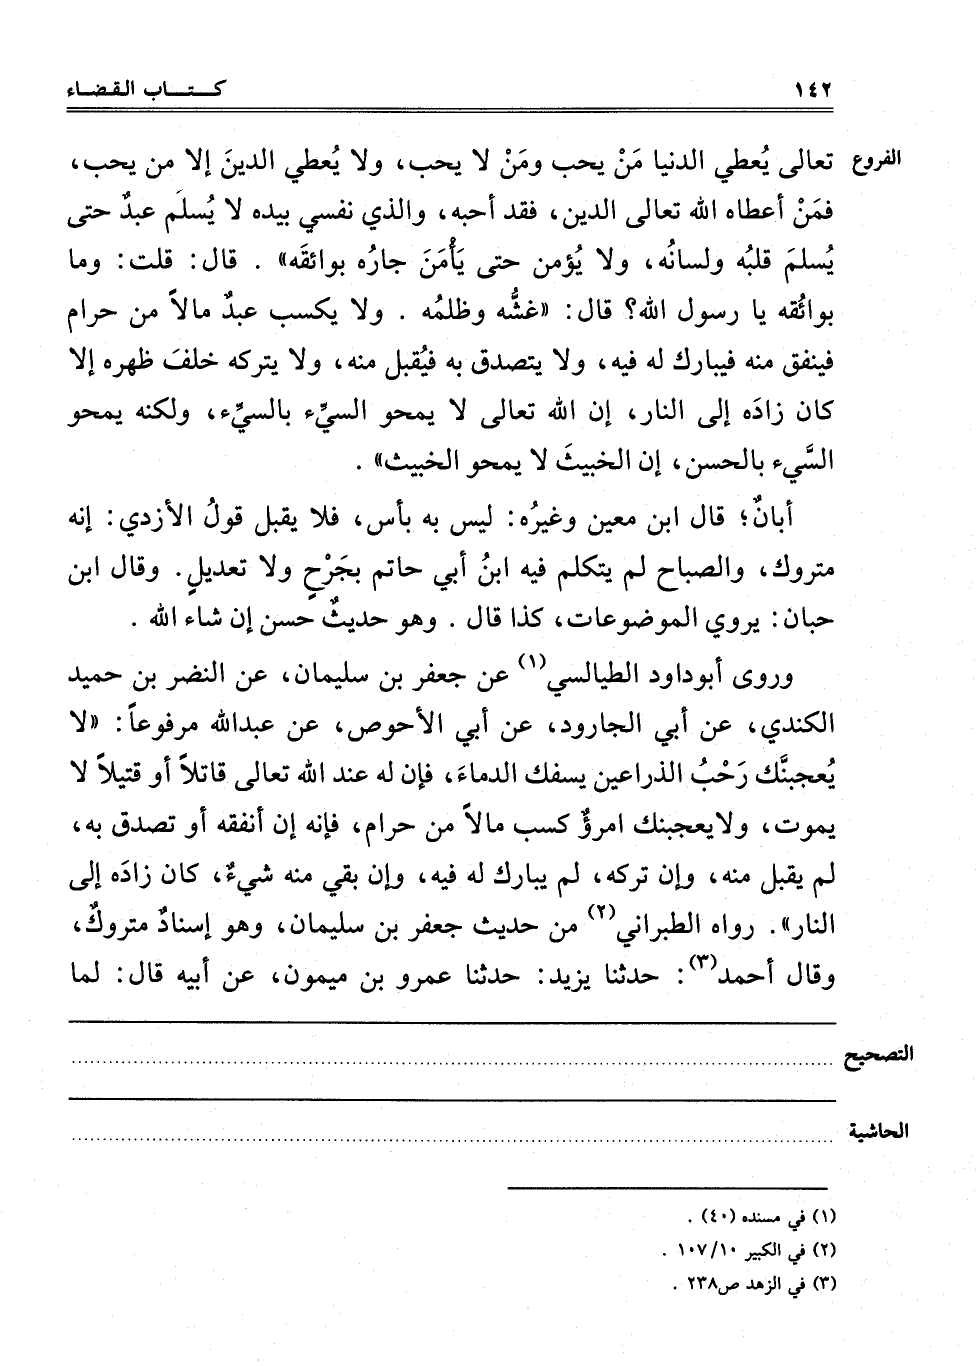 ١٤٢
كـتـاب القضاء
الفروع
تعالى يُعطي الدنيا مَنْ يحب ومَنْ لا يحب، ولا يُعطي الدينَ إلا من يحب،
فمَنْ أعطاه الله تعالى الدين، فقد أحبه، والذي نفسي بيده لا يُسلَم عبدٌ حتى
يُسلمَ قلبُه ولسانُه، ولا يُؤمن حتى يَأْمَنَ جارُه بوائقَه» . قال: قلت: وما
بوائُقه يا رسول الله؟ قال: «غشُّه وظلمُه . ولا يكسب عبدٌ مالاً من حرام
فينفق منه فيبارك له فيه، ولا يتصدق به فيُقبل منه، ولا يتركه خلفَ ظهره إلا
كان زادَه إلى النار، إن الله تعالى لا يمحو السيِّء بالسيِّء، ولكنه يمحو
السَّيء بالحسن، إن الخبيثَ لا يمحو الخبيث» .
أبانٌ؛ قال ابن معين وغيرُه: ليس به بأس، فلا يقبل قولُ الأزدي: إنه
متروك، والصباح لم يتكلم فيه ابنُ أبي حاتم بجَرْحٍ ولا تعديلٍ. وقال ابن
حبان: يروي الموضوعات، كذا قال . وهو حديثٌ حسن إن شاء الله .
وروى أبوداود الطيالسي(١) عن جعفر بن سليمان، عن النضر بن حميد
الكندي، عن أبي الجارود، عن أبي الأحوص، عن عبدالله مرفوعاً: «لا
يُعجبنَّك رَحْبُ الذراعين يسفك الدماءَ، فإن له عند الله تعالى قاتلاً أو قتيلاً لا
يموت، ولايعجبنك امرؤٌ كسب مالاً من حرام، فإنه إن أنفقه أو تصدق به،
لم يقبل منه، وإن تركه، لم يبارك له فيه، وإن بقي منه شيءٌ، كان زادَه إلى
النار». رواه الطبراني(٢) من حديث جعفر بن سليمان، وهو إسنادٌ متروكٌ،
وقال أحمد(٣): حدثنا يزيد: حدثنا عمرو بن ميمون، عن أبيه قال: لما
التصحيح
الحاشية
(١) في مسنده (٤٠) .
(٢) في الكبير ١٠٧/١٠ .
(٣) في الزهد ص٢٣٨ .